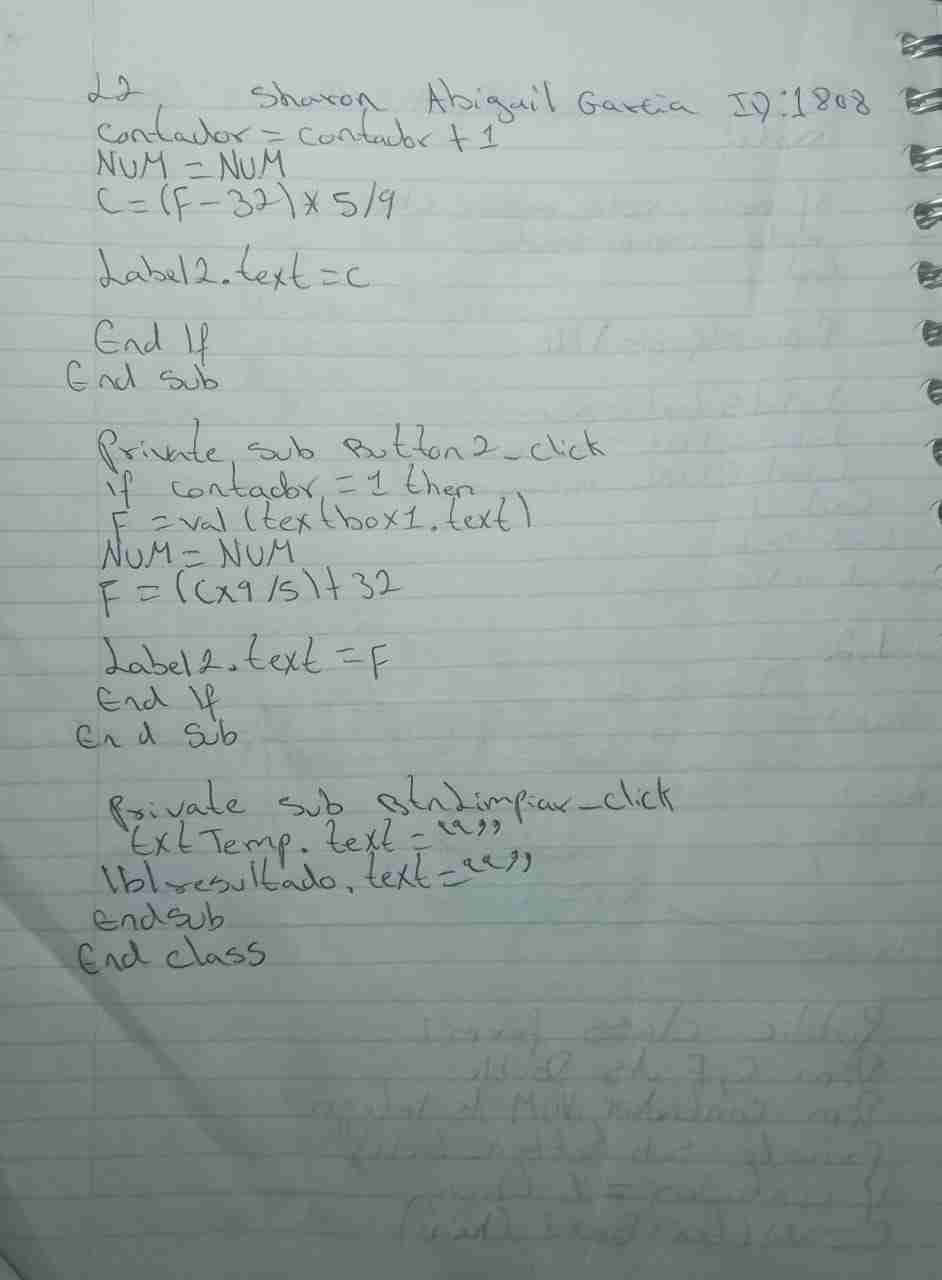 22 Sharon Abigail Garcia ID:1808
Contador = contador + 1
NUM = NUM
C = (F - 32) x 5/9
Label2.text = C
End If
End Sub
Private sub Button2_click
If contador = 1 then
F = val (textbox1.text)
NUM = NUM
F = (Cx9/5)+32
Label2.text = F
End If
End Sub
Private sub BtnLimpiar_click
txtTemp.text = “”
lblresultado.text = “”
Endsub
End class